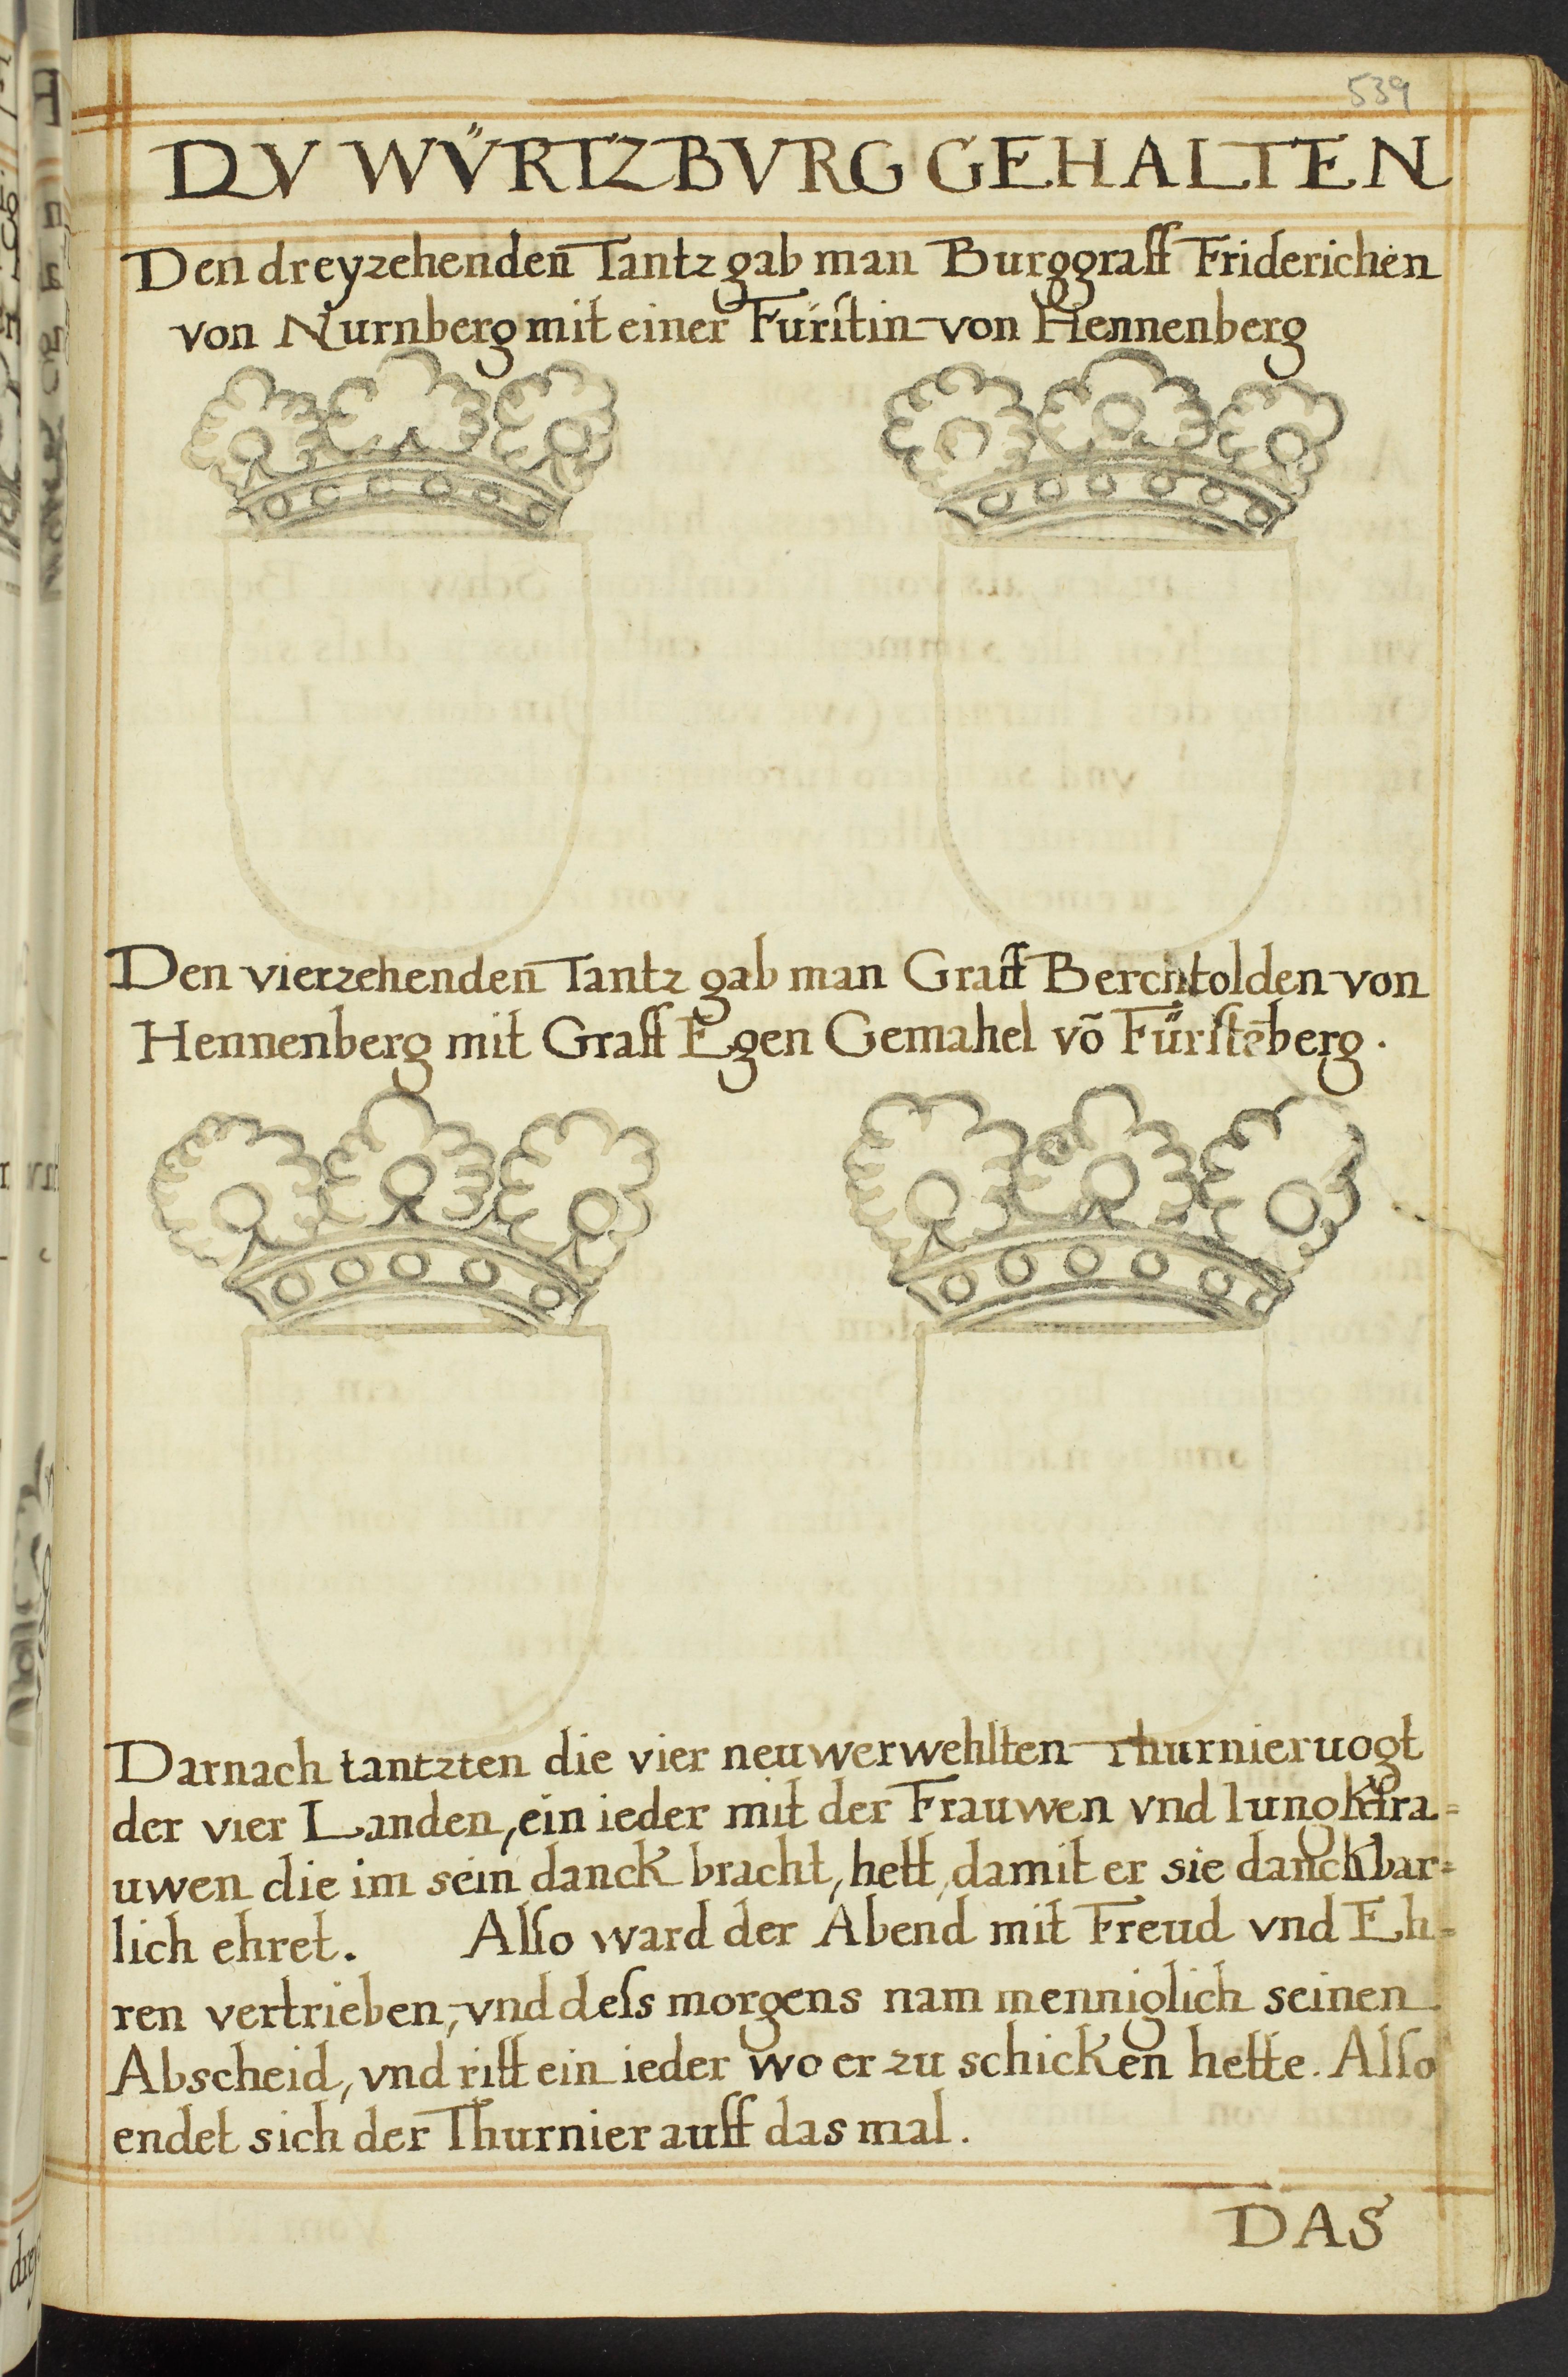 539
DV WÜRTZBVRG GEHALTEN
Den dreyzehenden Tantz gab man Burggraff Friderichen
von Nurnberg mit einer Fürstin von Hennenberg
Den vierzehenden Tantz gab man Graff Berchtolden von
Hennenberg mit Graff Egen Gemahel võ Fürstēberg.
Darnach tantzten die vier neuwerwehlten Thurnieruogt
der vier Landen, ein ieder mit der Frauwen vnd Iungkfra=
uwen die im sein danck bracht, hett, damit er sie danckbar=
lich ehret. Also ward der Abend mit Freud vnd Eh=
ren vertrieben, vnd dess morgens nam menniglich seinen
Abscheid, vnd ritt ein ieder wo er zu schicken hette. Also
endet sich der Thurnier auff das mal.
DAS